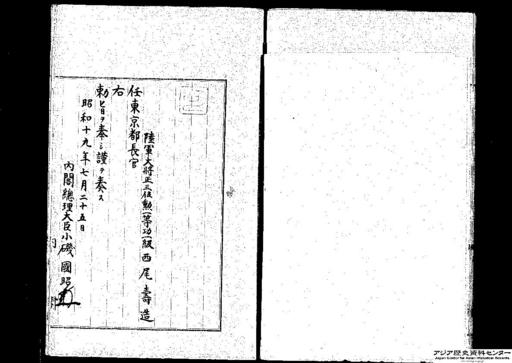 陸軍大將正三位勲一等功一級西尾壽造
任東京都長官
右
勅旨ヲ奉シ謹テ奏ス
昭和十九年七月二十五日
内閣總理大臣小磯國昭
アジア歴史資料センター
Japan Center for Asian Historical Records